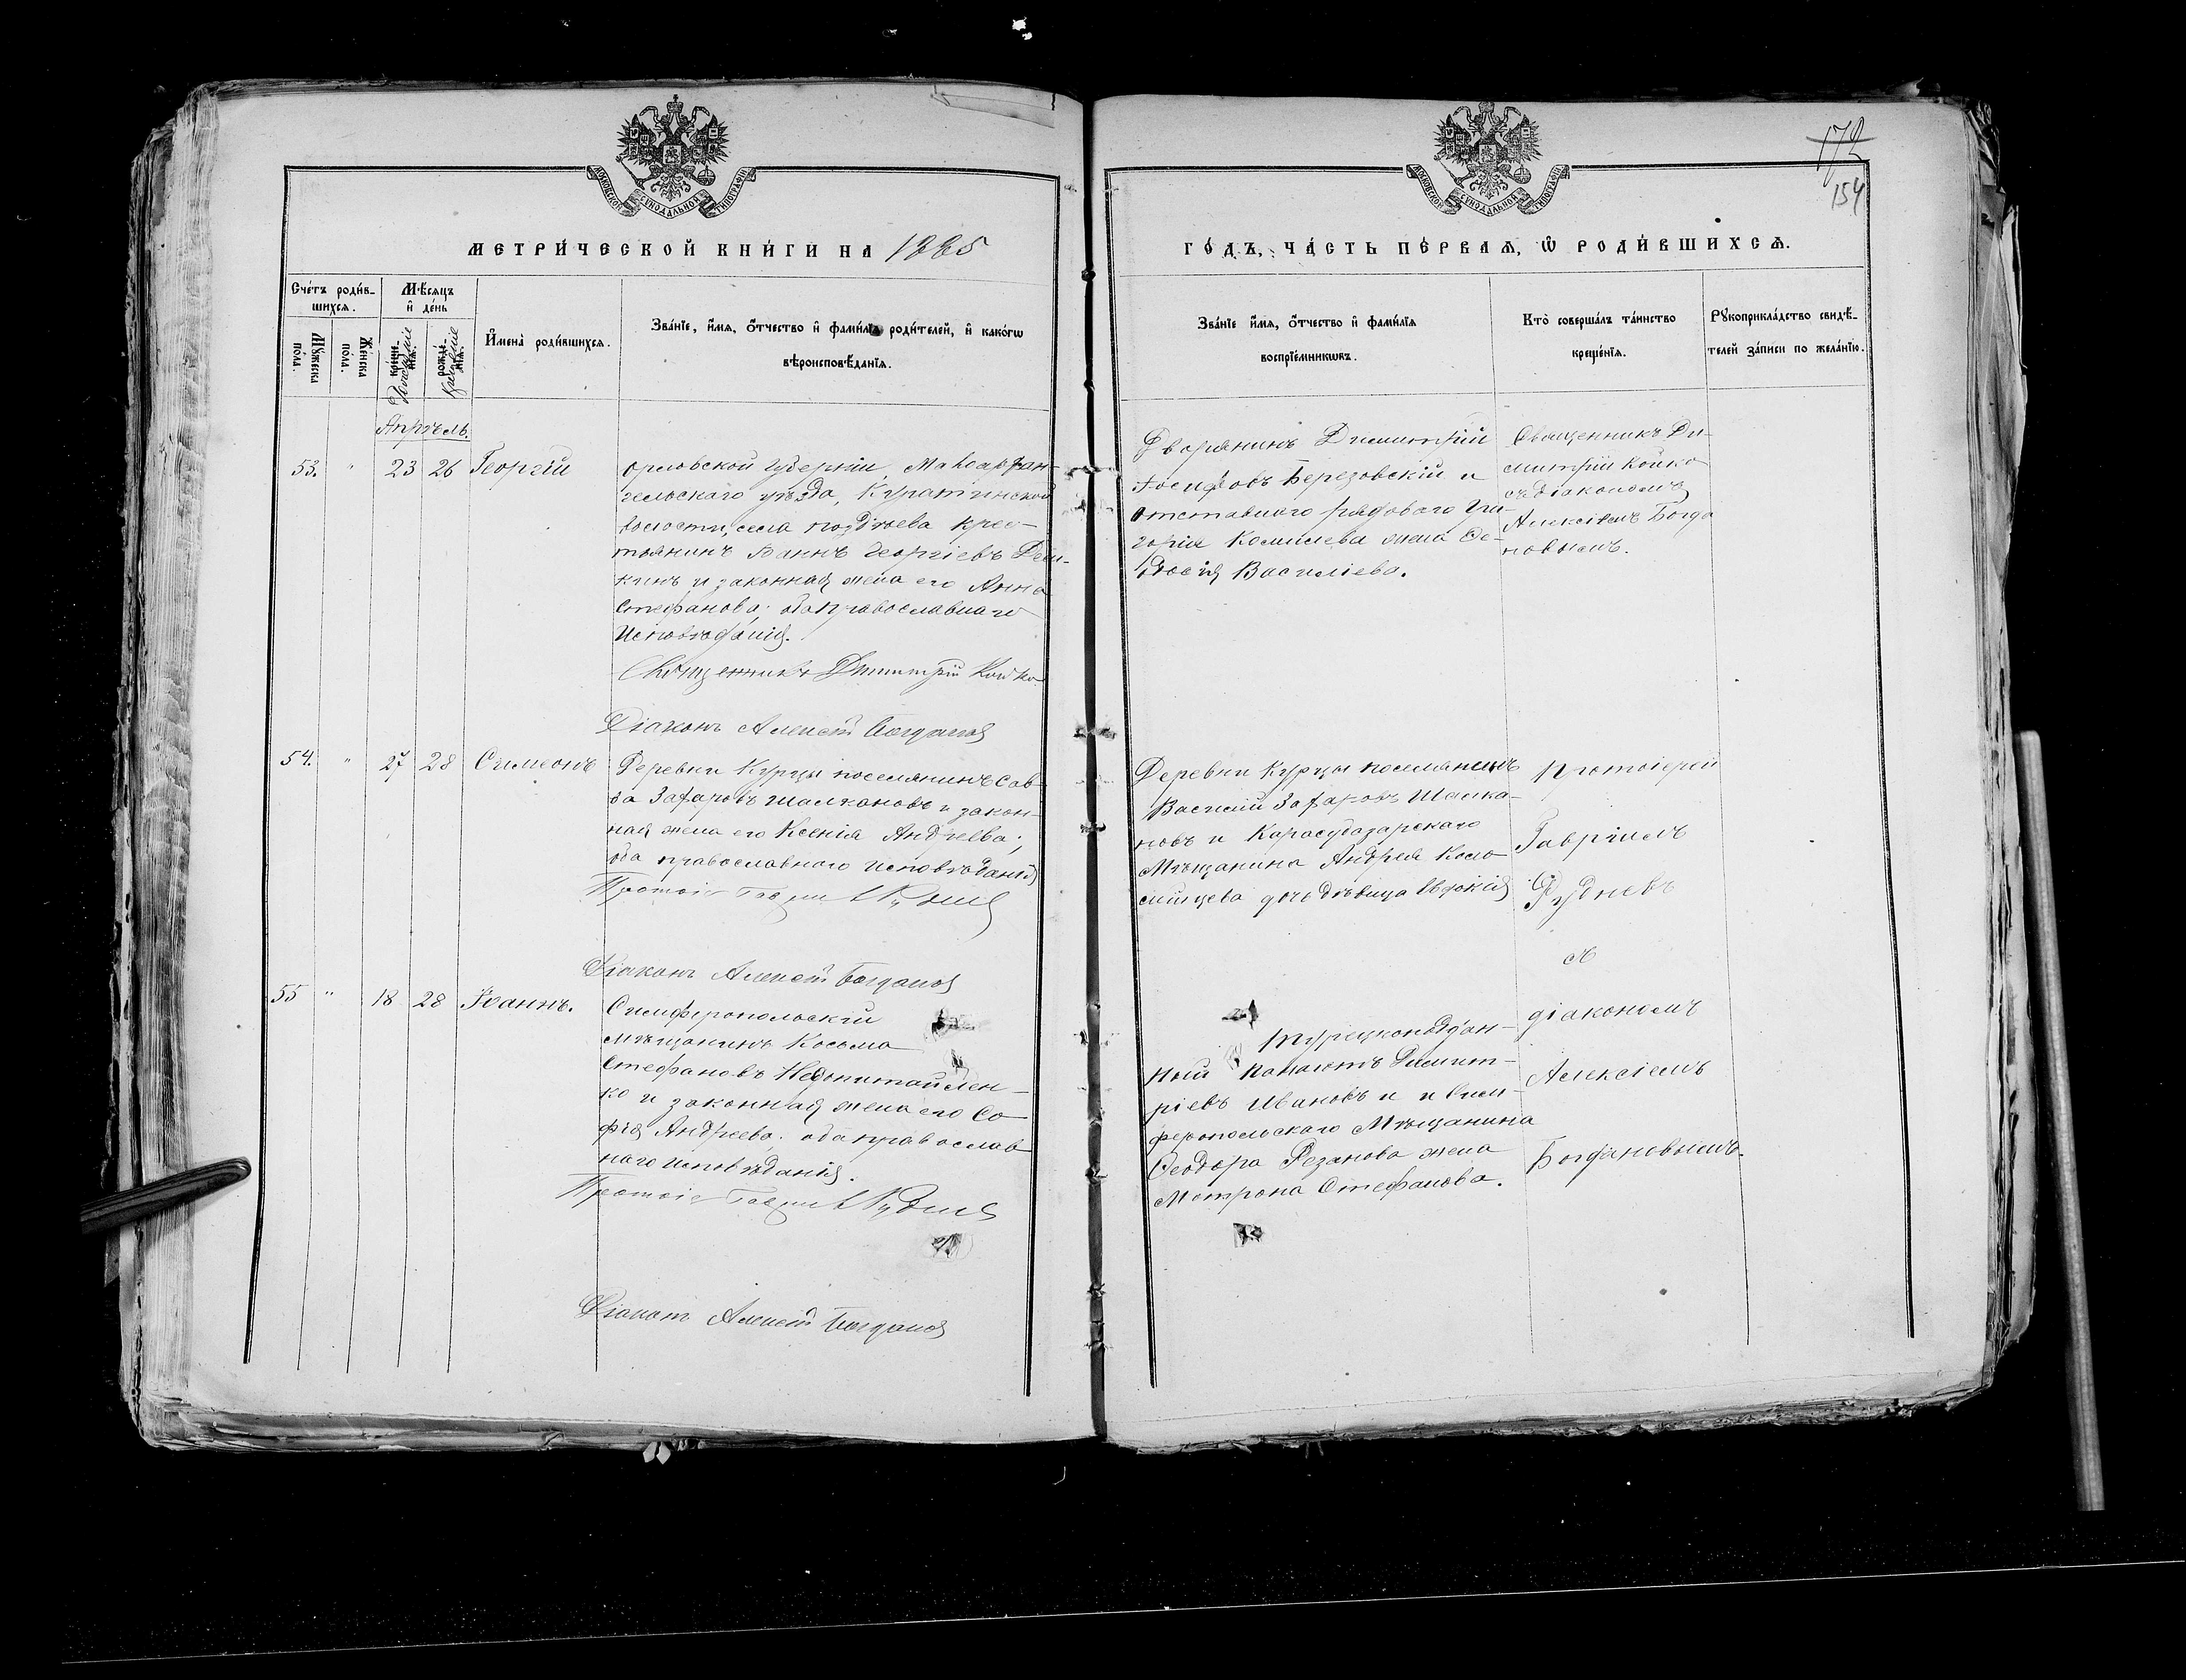 МОСКОВСКОЙ СѴНОДАЛЬНОЙ ТИПОГРАФІИ
МЕТРИ́ЧЕСКОЙ КНИ́ГИ НА 1885
Сче́тъ роди́в-
шихся.
Мѣ́сяцъ
и҆ де́нь
Му́жеска
по́ла.
Же́нска
по́ла.
креще́-
нія.
рожде́-
нія.
И҆мена̀ роди́вшихся.
Зва́нїе, и҆́мя, ѻ҆́тчество и҆ фами́лїѧ роди́телей, и҆ како́гѡ
вѣроисповѣ́данїѧ.
Апрѣль.
53. " 23 26 Георгій
Орловской губерніи, Малоархан-
гельскаго уѣзда,
волости, села Поздѣева крес-
тьянинъ Іоаннъ Георгіевъ
и законная жена его Анна
Стефанова; оба православнаго
исповѣданія.
Священникъ Димитрій Койко
Діаконъ Алексій Богданов
54. " 27 28 Симеонъ
Деревни Курцы поселянинъ Сав-
ва Захаровъ Шалкановъ и закон-
ная жена его Ксенія Андреева;
оба православного исповѣданія
Протоіе Гаврии Руднев
Діаконъ Алексій Богданов
55 " 18 28 Іоаннъ.
Симферопольскій
мѣщанинъ Косьма
Стефановъ Недопитайлен-
ко и законная жена его Со-
фія Андреева; оба православ
наго исповѣданія.
Протоіе Гаврии Руднев
Діаконъ Алексій Богданов
172
154
МОСКОВСКОЙ СѴНОДАЛЬНОЙ ТИПОГРАФІИ
ГО́ДЪ, ЧА́СТЬ ПЕ́РВАЯ, Ѡ҆ РОДИ́ВШИХСѦ.
Зва́нїе и҆́мя, ѻ҆́тчество и҆ фами́лїѧ
воспрїе́мникѡвъ.
Кто̀ соверша́лъ та́инство
креще́нїѧ.
Рꙋкоприкла́дство свидѣ́-
телей за́писи по жела́нїю.
Дворянинъ Димитрій
Іосифовъ Березовскій и
отставного рядового Гри-
горія жена Ѳе-
одосія Василіева.
Священникъ Ди-
митрій Койко
съ діакономъ
Алексіемъ Богда
новымъ.
Деревни Курцы поселянинъ
Василій Захаровъ Шалка-
новъ и Карасубазарскаго
мѣщанина Андрея Коло
мийцева дочь дѣвица Евдокія
Протоіерей
Гавріилъ
Рудневъ
съ
діакономъ
Алексіемъ
Богдановымъ.
Турецкоподдан-
ный Панаіотъ Димит-
ріевъ Ивановъ и и Сим-
феропольского мѣщанина
Ѳеодора Резанова жена
Матрона Стефанова.